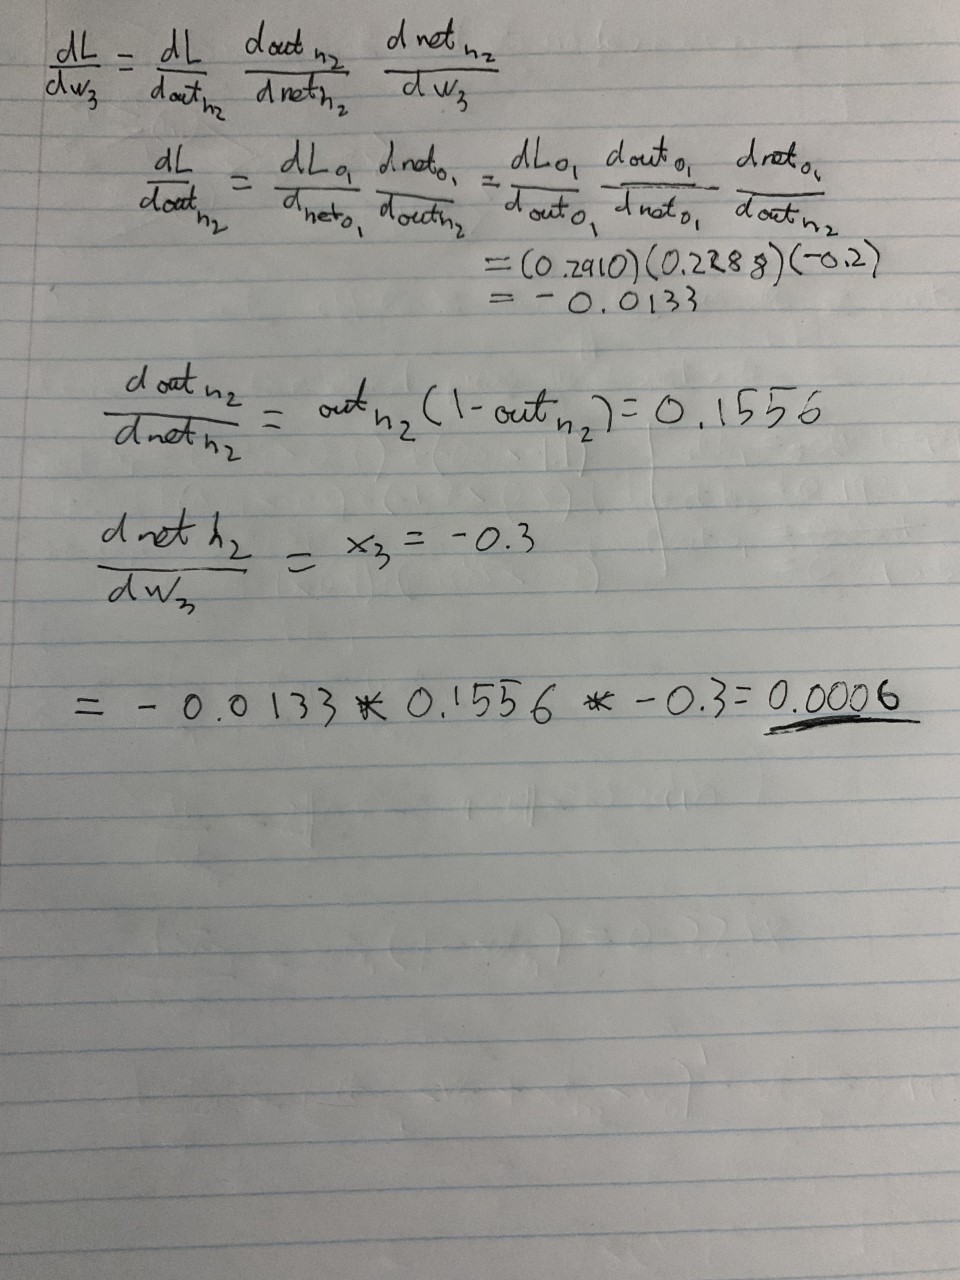 dL/dw₃ = dL/dout_h₂ dout_h₂/dnet_h₂ dnet_h₂/dw₃
dL/dout_h₂ = dL_o₁/dnet_o₁ dnet_o₁/dout_h₂ = dL_o₁/dout_o₁ dout_o₁/dnet_o₁ dnet_o₁/dout_h₂
= (0.2910)(0.2288)(-0.2)
= -0.0133
dout_h₂/dnet_h₂ = out_h₂(1-out_h₂) = 0.1556
dnet h₂/dw₃ = x₃ = -0.3
= -0.0133 * 0.1556 * -0.3 = 0.0006